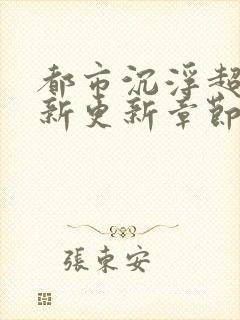 都市沉浮超
新更新章節
張東安